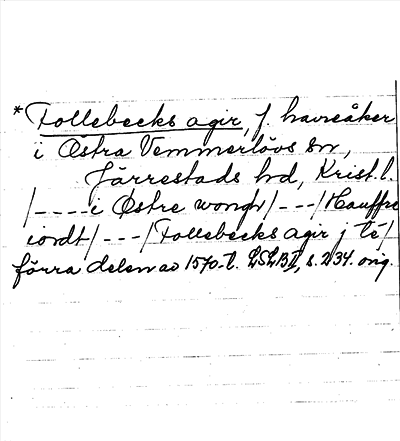 * Follebecks agir, f. havreåker
i Östra Vemmerlövs sn,
Järrestads hd, Krist.l.
/----i Østre wongr/---/Hauffre
iordt/---/Follebecks agir j té/
förra delen av 1570-t. LSLB II, s. 234. orig.